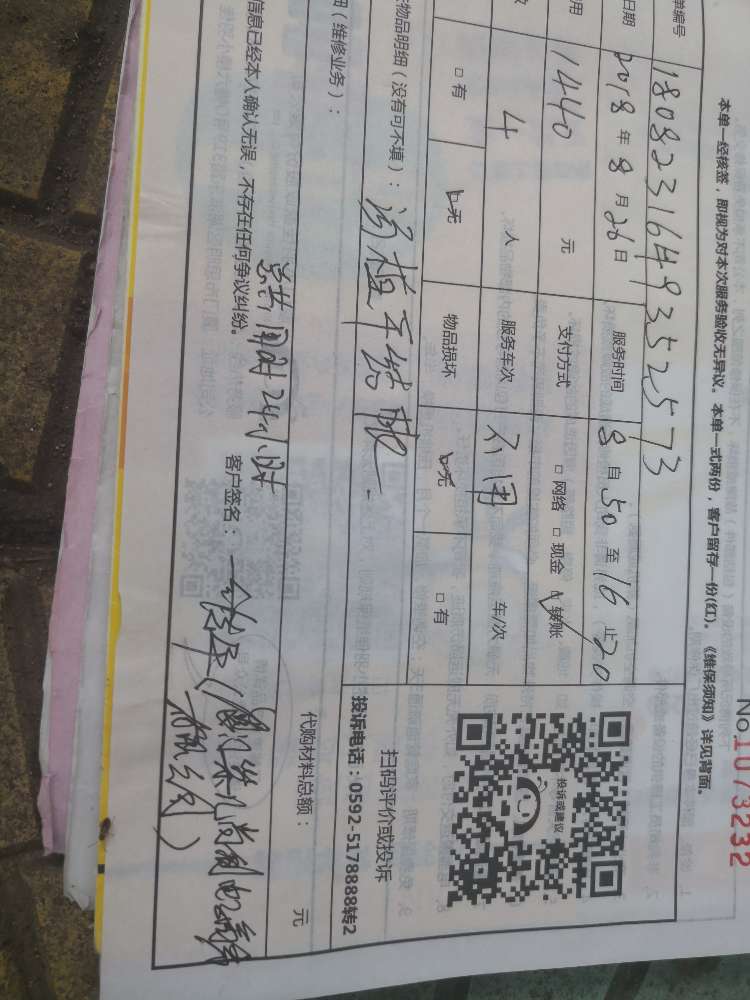 No.1073232
本单一经核签，即视为对本次服务验收无异议。本单一式两份，客户留存一份(红)。《维保须知》详见背面。
单编号 180823164935 2573
日期 2018 年 8 月 26 日 服务时间 8 自 50 至 16 止 20
用 1440 元 支付方式 □ 网络 □ 现金 ☑ 转账
4 人 服务车次 不用 车/次
□ 有 ☑ 无 物品损坏 ☑ 无 □ 有
物品明细（没有可不填）：
细（维修业务）：
总共用时24小时
代购材料总额： 元
信息已经本人确认无误，不存在任何争议纠纷。 客户签名：
有限公司）
投诉或建议
扫码评价或投诉
投诉电话：0592-5178888转2